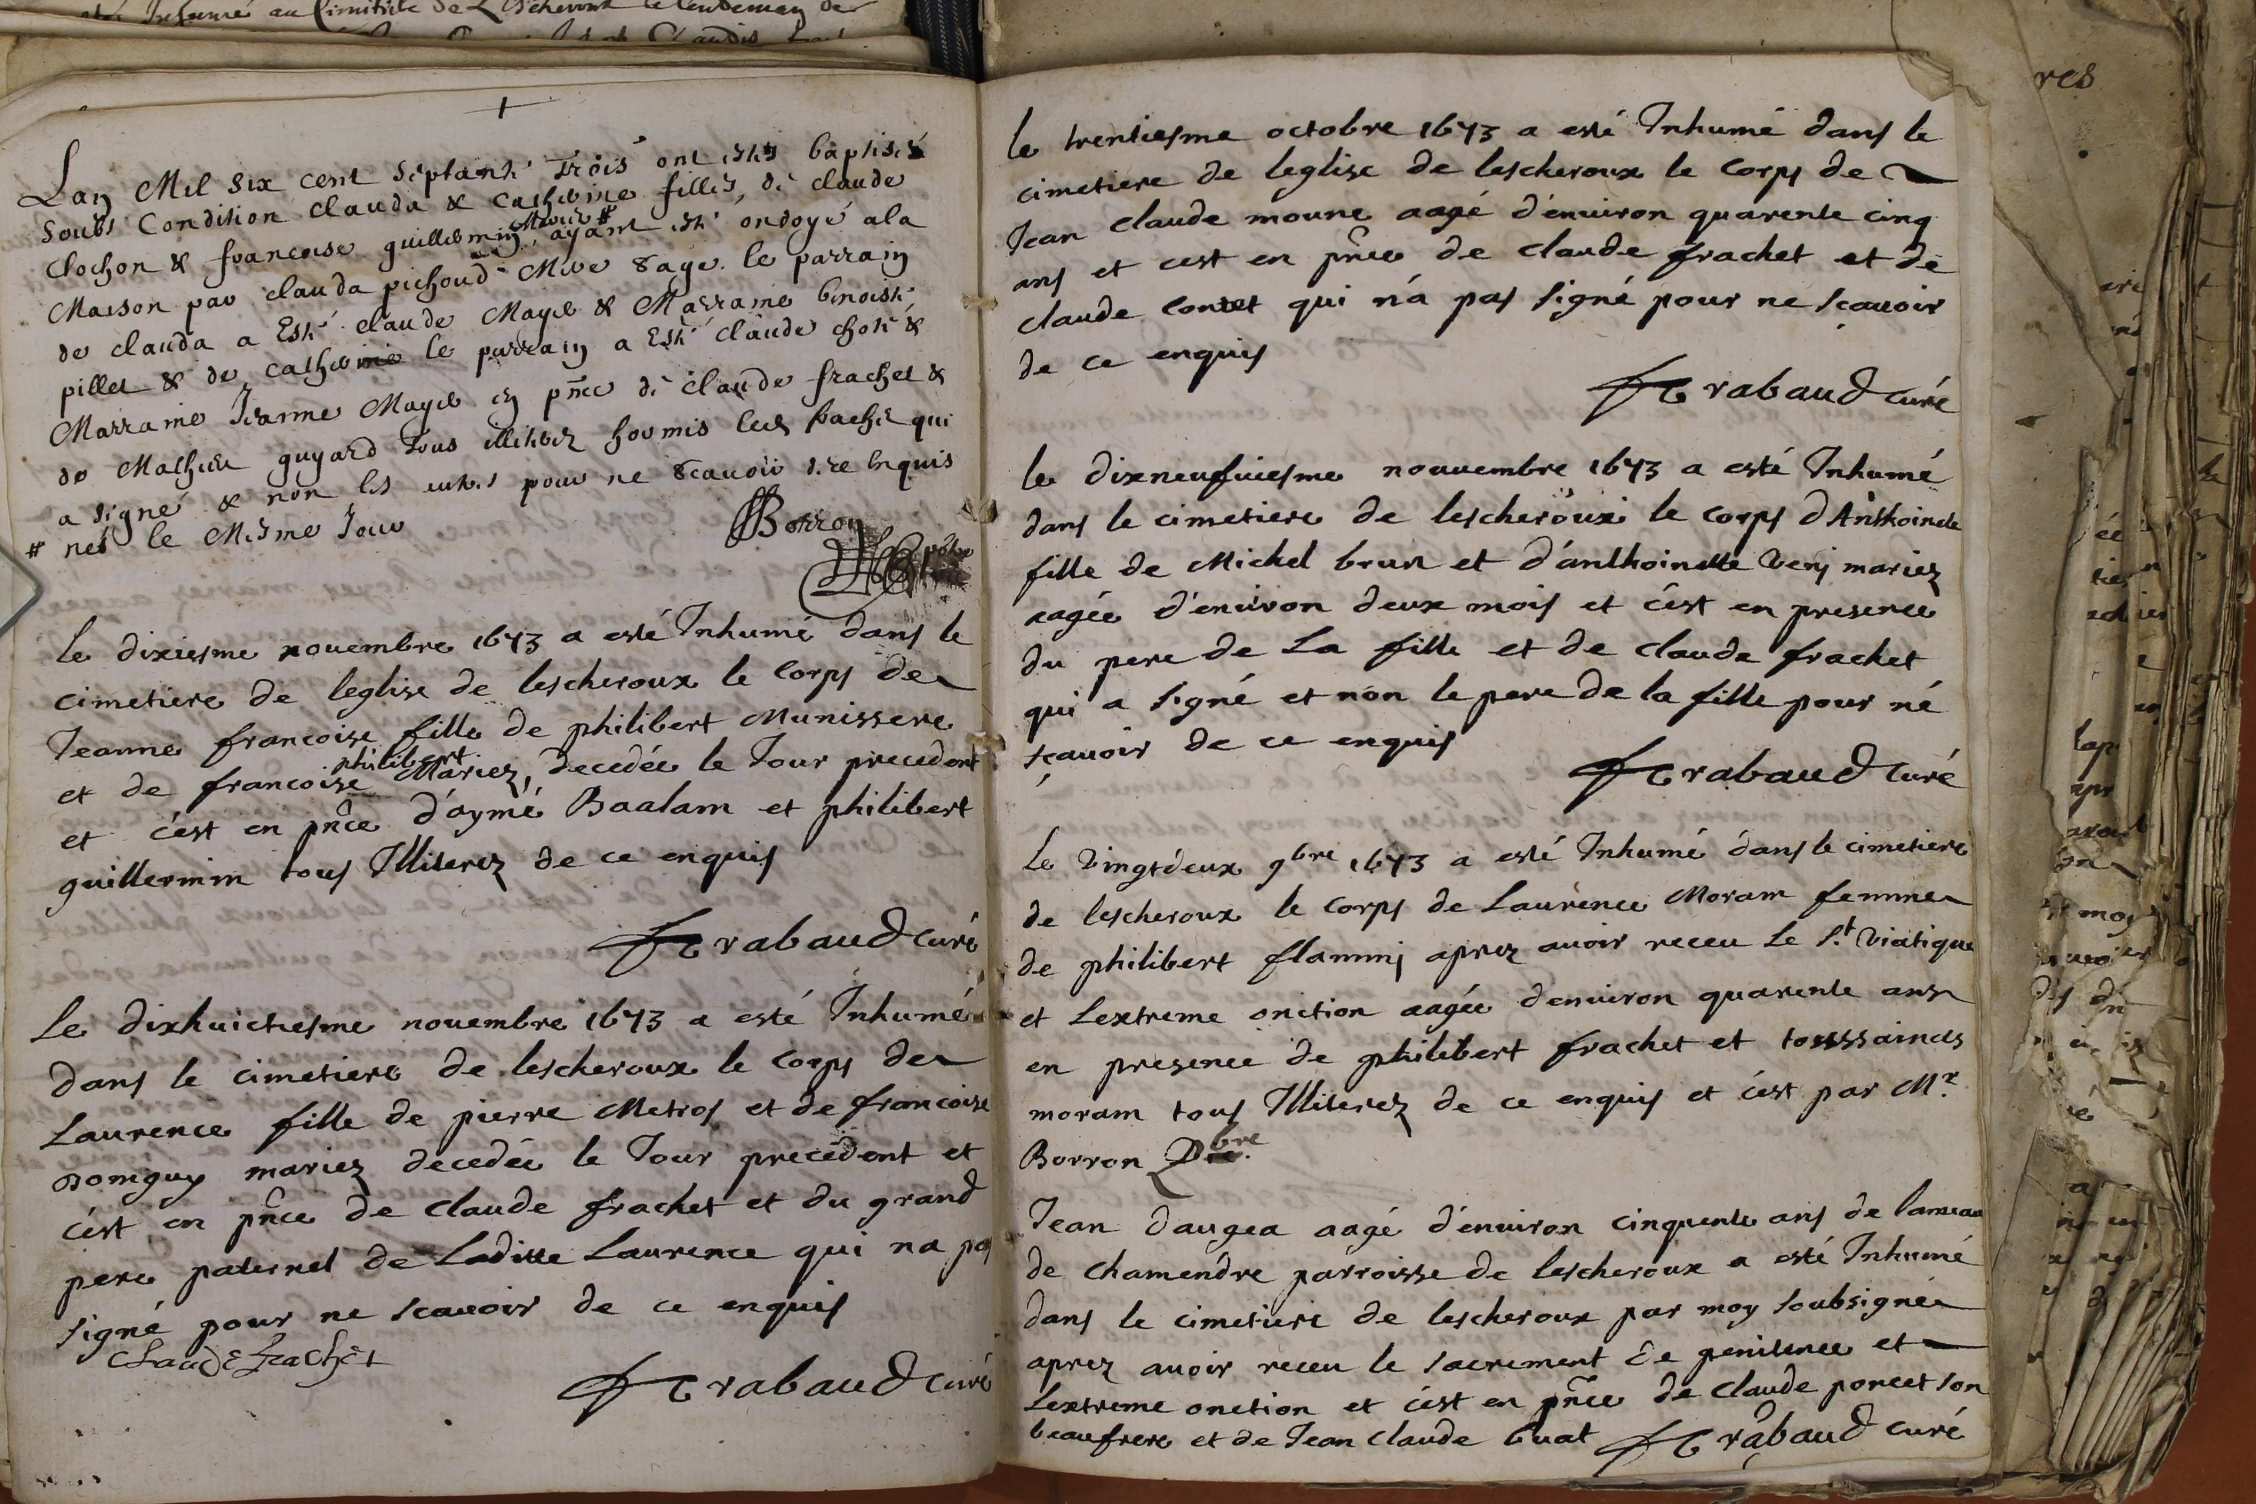 Lan Mil Six cent Septante Trois ont estés baptisés
Soubs Condition clauda & catherine filles, de claude
clochon & francoise guillermin Mariés # ayant esté ondoyé a la
Maison par clauda pichoud Mere sage. le parrain
de clauda a Esté claude Mayet & Marraine benoiste
pillet & de catherine le parrain a Esté claude choté &
Marraine Jeanne Mayet en pñce de claude frachet &
de Mathieu guyard tous illiterez hormis led frachet qui
a signé & non les autres pour ne scavoir de ce Enquis
# nés le Mesme Jour
Borron
le dixiesme novembre 1673 a esté Inhumé dans le
cimetiere de leglise de lescheroux le Corps de
Jeanne francoise fille de philibert Munissere
et de francoise philibert Mariez, decedée le Jour precedent
et c'est en pñce d'aymé Baalam et philibert
guillermin tous Illiterez de ce enquis
Trabaud curé
Le dixhuictiesme novembre 1673 a esté Inhumé
dans le cimetiere de lescheroux le Corps de
Laurence fille de pierre Metros et de francoise
Domguy mariez decedée le Jour precedent et
c'est en pñce de claude frachet et du grand
pere paternel de Laditte Laurence qui na pas
signé pour ne scavoir de ce enquis
Claude Frachet
Trabaud curé
le trentiesme octobre 1673 a esté Inhumé dans le
cimetiere de leglise de lescheroux le Corps de
Jean claude moune aagé d'environ quarente cinq
ans et cest en pñce de claude frachet et de
claude Contet qui n'a pas signé pour ne scavoir
de ce enquis
Trabaud curé
le dixneufviesme nouvembre 1673 a esté Inhumé
dans le cimetiere de lescheroux le corps d'Anthoinete
fille de Michel brun et d'anthoinette Veni mariez
aagée d'environ deux mois et c'est en presence
du pere de La fille et de claude frachet
qui a signé et non le pere de la fille pour né
scavoir de ce enquis
Trabaud curé
Le Vingtdeux 9bre 1673 a esté Inhumé dans le cimetiere
de lescheroux le corps de Laurence Moram femme
de philibert flammi aprez avoir receu Le St. Viatique
et Lextreme onction aagée denviron quarente ans
en presence de philibert frachet et tousssaincts
moram tous Illiterez de ce enquis et c'est par Mr.
Borron Pbre.
Jean Daugea aagé d'environ cinquente ans de lameau
de chamendre parroisse de lescheroux a esté Inhumé
dans le cimetiere de lescheroux par moy soubsigné
aprez avoir receu le sacrement de penitence et
Lextreme onction et c'est en pñce de Claude poncet son
beaufrere et de Jean claude buat Trabaud curé